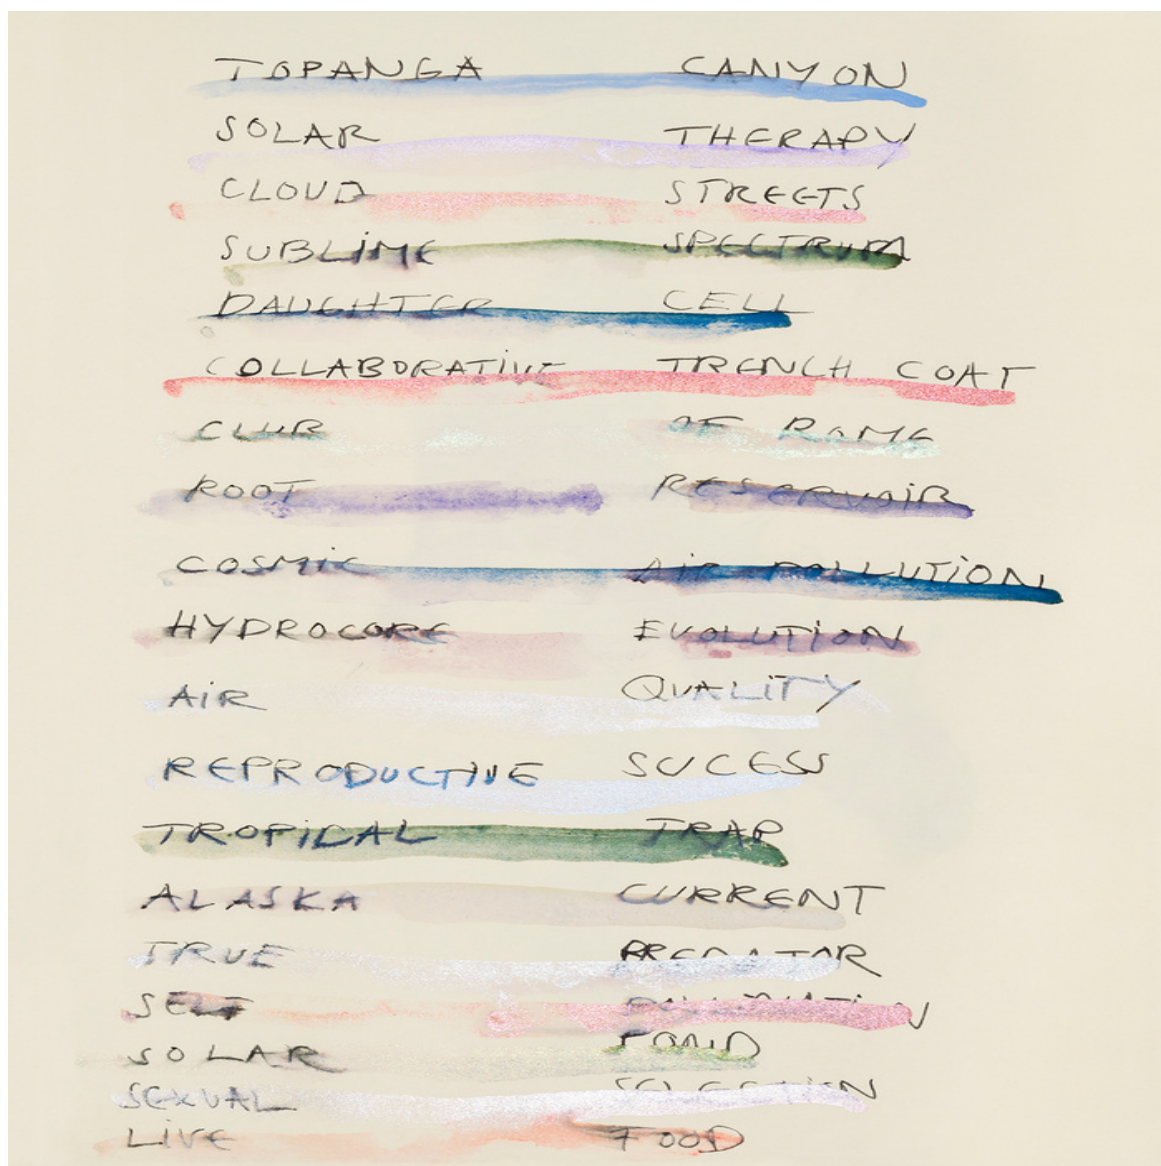 TOPANGA CANYON
SOLAR THERAPY
CLOUD STREETS
SUBLIME SPECTRUM
DAUGHTER CELL
COLLABORATIVE TRENCH COAT
CLUB OF ROME
ROOT RESERVOIR
COSMIC AIR POLLUTION
HYDROCORE EVOLUTION
AIR QUALITY
REPRODUCTIVE SUCESS
TROPICAL TRAP
ALASKA CURRENT
TRUE PREDATOR
SELF POLLINATION
SOLAR POND
SEXUAL SELECTION
LIVE FOOD